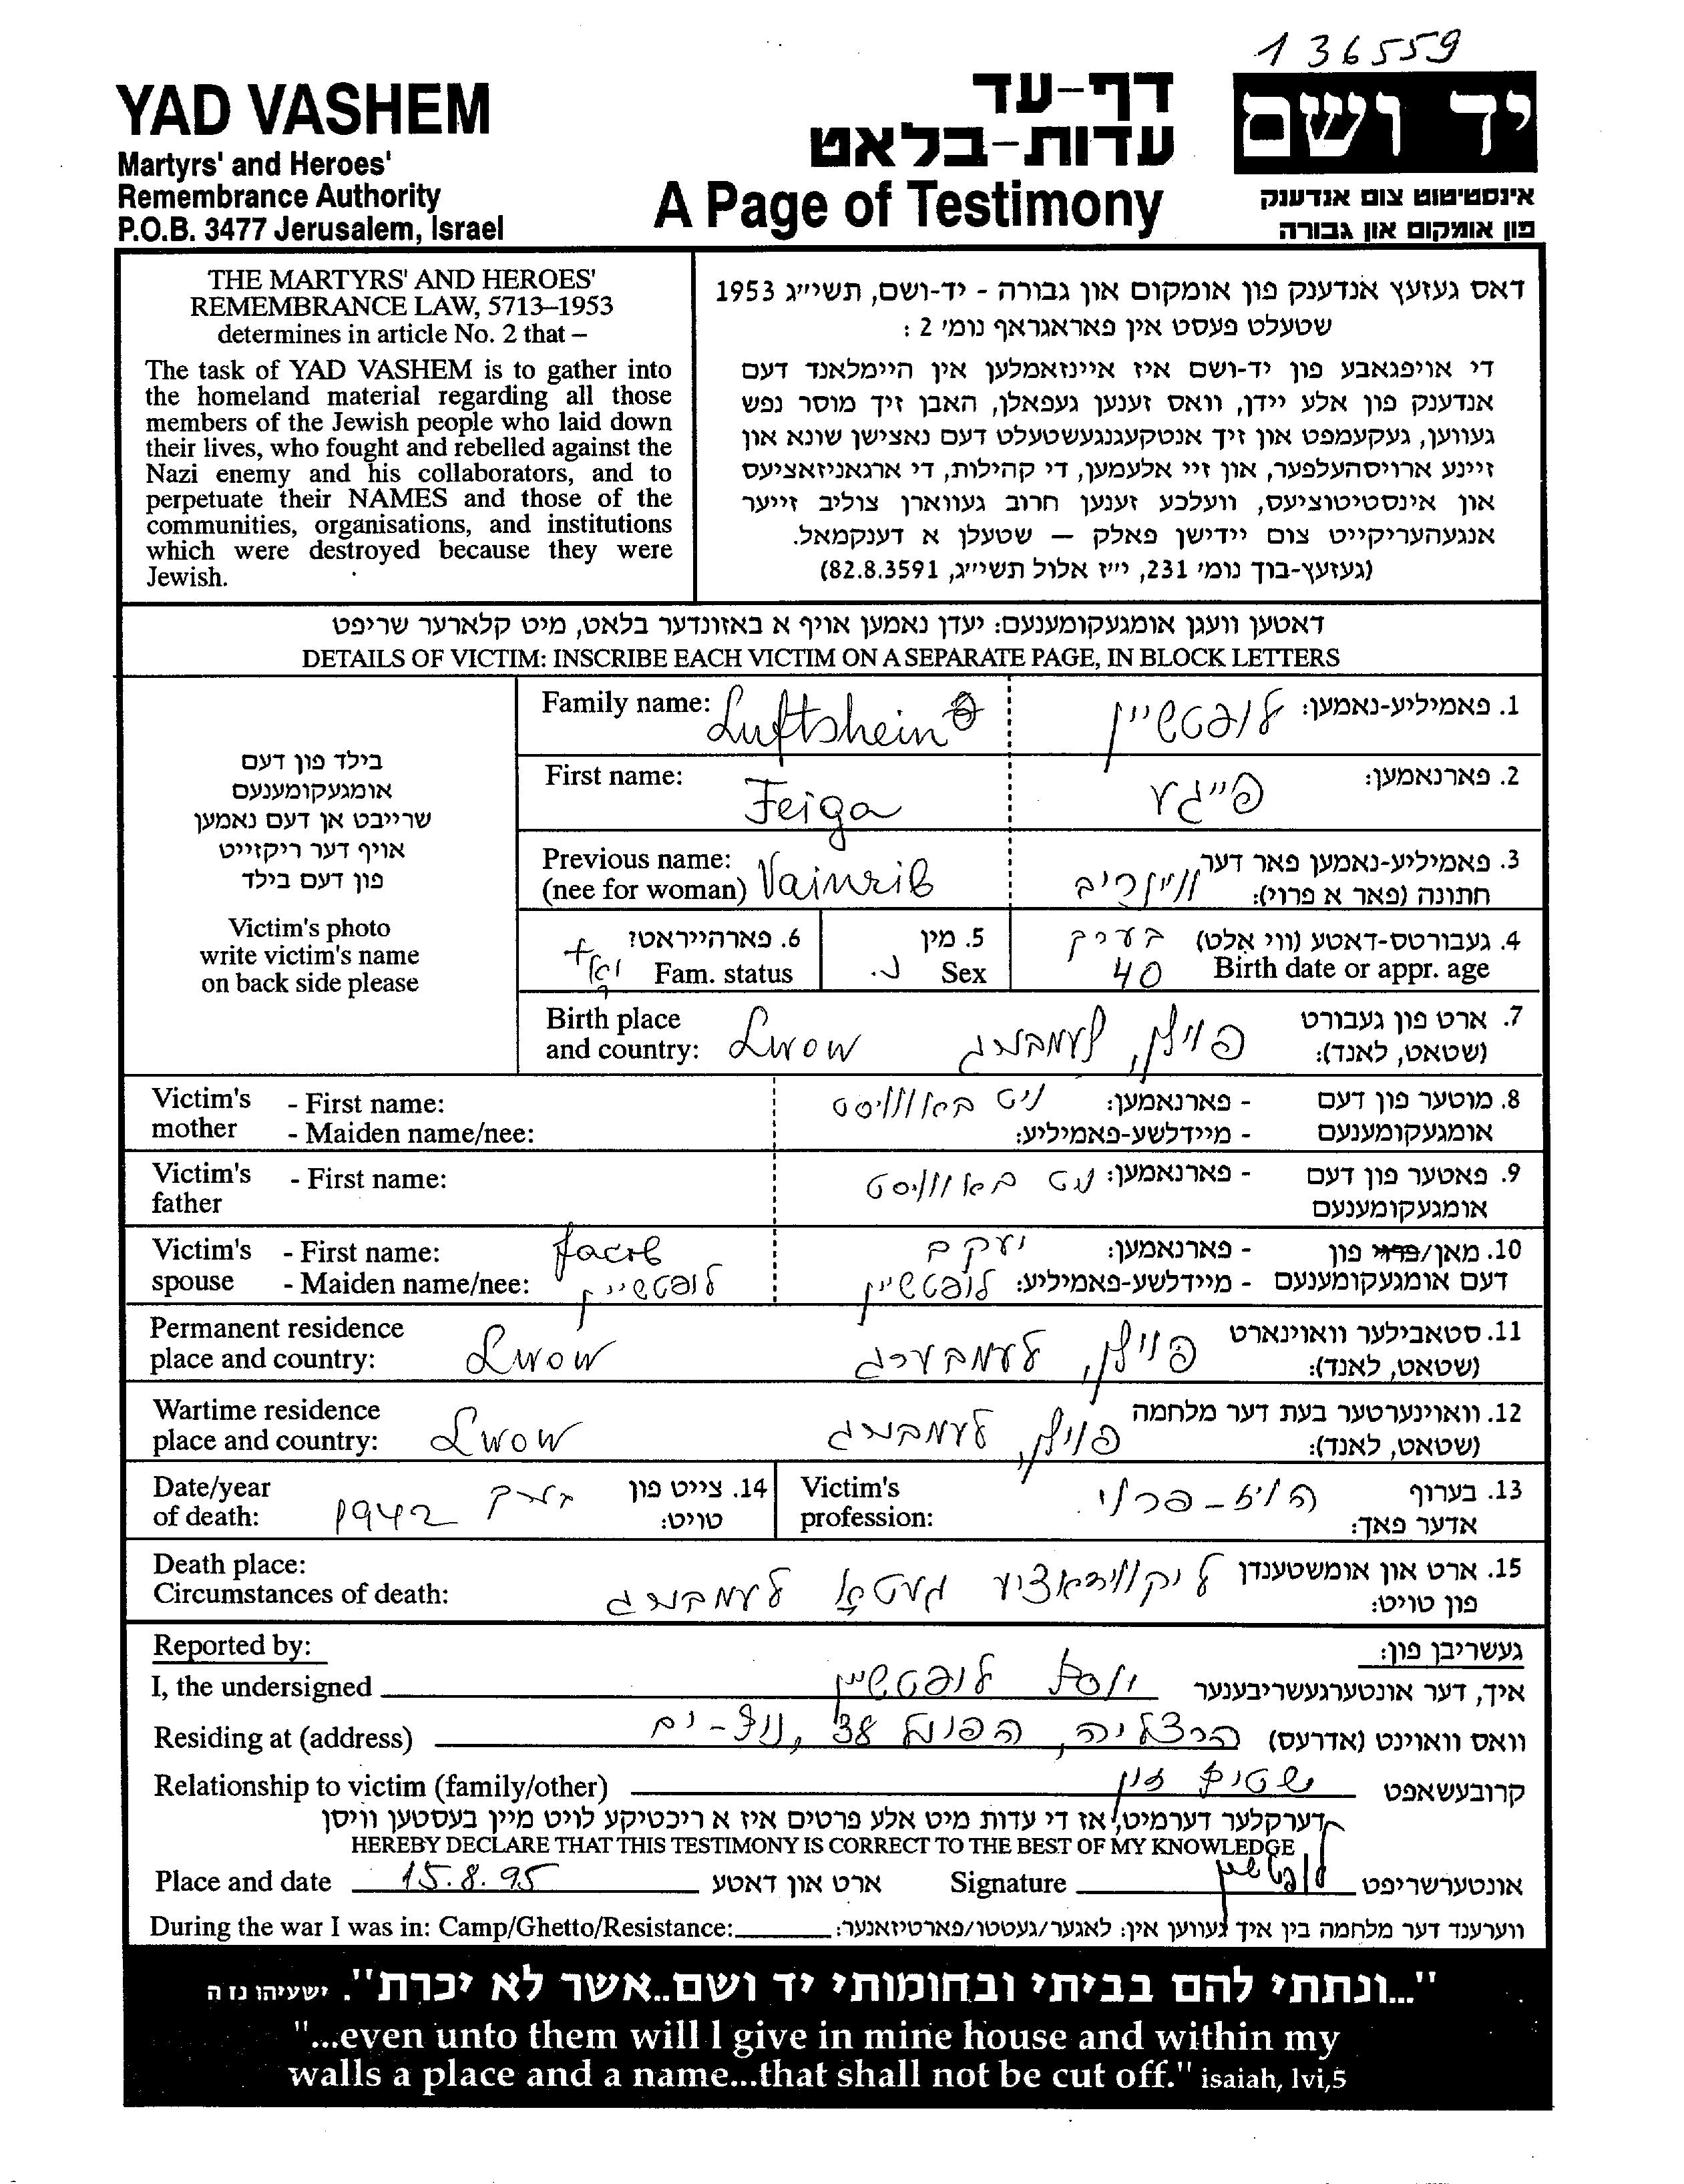 136559
YAD VASHEM
Martyrs' and Heroes'
Remembrance Authority
P.O.B. 3477 Jerusalem, Israel
דף-עד
עדות-בלאט
A Page of Testimony
יד ושם
אינסטיטוט צום אנדענק
פון אומקום און גבורה
THE MARTYRS' AND HEROES'
REMEMBRANCE LAW, 5713–1953
determines in article No. 2 that –
The task of YAD VASHEM is to gather into
the homeland material regarding all those
members of the Jewish people who laid down
their lives, who fought and rebelled against the
Nazi enemy and his collaborators, and to
perpetuate their NAMES and those of the
communities, organisations, and institutions
which were destroyed because they were
Jewish.
דאס געזעץ אנדענק פון אומקום און גבורה - יד-ושם, תשי״ג 1953
שטעלט פעסט אין פאראגראף נומ׳ 2 :
די אויפגאבע פון יד-ושם איז איינזאמלען אין היימלאנד דעם
אנדענק פון אלע יידן, וואס זענען געפאלן, האבן זיך מוסר נפש
געווען, געקעמפט און זיך אנטקעגנגעשטעלט דעם נאצישן שונא און
זיינע ארויסהעלפער, און זיי אלעמען, די קהילות, די ארגאניזאציעס
און אינסטיטוציעס, וועלכע זענען חרוב געווארן צוליב זייער
אנגעהעריקייט צום יידישן פאלק – שטעלן א דענקמאל.
(געזעץ-בוך נומ׳ 231, י״ז אלול תשי״ג, 82.8.3591)
דאטען וועגן אומגעקומענעם: יעדן נאמען אויף א באזונדער בלאט, מיט קלארער שריפט
DETAILS OF VICTIM: INSCRIBE EACH VICTIM ON A SEPARATE PAGE, IN BLOCK LETTERS
בילד פון דעם
אומגעקומענעם
שרייבט אן דעם נאמען
אויף דער ריקזייט
פון דעם בילד
Victim's photo
write victim's name
on back side please
Family name: Luftshein
1. פאמיליע-נאמען: לופטשיין
First name: Feiga
2. פארנאמען: פייגע
Previous name:
(nee for woman) Vainrib
3. פאמיליע-נאמען פאר דער
חתונה (פאר א פרוי): וויינריב
4. געבורטס-דאטע (ווי אלט) בערך
Birth date or appr. age 40
5. מין
Sex נ.
6. פארהייראט?
Fam. status יא +
Birth place
and country: Lwow
7. ארט פון געבורט
(שטאט, לאנד): פוילן, לעמבערג
Victim's mother - First name:
- Maiden name/nee:
8. מוטער פון דעם אומגעקומענעם - פארנאמען: ניט באוווסט
- מיידלשע-פאמיליע:
Victim's father - First name:
9. פאטער פון דעם אומגעקומענעם - פארנאמען: ניט באוווסט
Victim's spouse - First name: Jacob
- Maiden name/nee: לופטשיין
10. מאן/פרוי פון - פארנאמען: יעקב
דעם אומגעקומענעם - מיידלשע-פאמיליע: לופטשיין
Permanent residence
place and country: Lwow
11. סטאבילער וואוינארט
(שטאט, לאנד): פוילן, לעמבערג
Wartime residence
place and country: Lwow
12. וואוינערטער בעת דער מלחמה
(שטאט, לאנד): פוילן, לעמבערג
Date/year
of death: 1942 בערך
14. צייט פון
טויט:
Victim's
profession:
13. בערוף
אדער פאך: הויז-פרוי.
Death place:
Circumstances of death:
15. ארט און אומשטענדן
פון טויט: ליקווידאציע געטא לעמבערג
Reported by:
געשריבן פון:
I, the undersigned יוסף לופטשיין איך, דער אונטערגעשריבענער
Residing at (address) הרצליה, הפועל 38, נוף-ים וואס וואוינט (אדרעס)
Relationship to victim (family/other) שטיף זון קרובעשאפט
דערקלער דערמיט, אז די עדות מיט אלע פרטים איז א ריכטיקע לויט מיין בעסטען וויסן
HEREBY DECLARE THAT THIS TESTIMONY IS CORRECT TO THE BEST OF MY KNOWLEDGE
Place and date 15.8.95 ארט און דאטע Signature לופטשיין אונטערשריפט
During the war I was in: Camp/Ghetto/Resistance: ווערענד דער מלחמה בין איך געווען אין: לאגער/געטטו/פארטיזאנער:
"...ונתתי להם בביתי ובחומותי יד ושם..אשר לא יכרת". ישעיהו נז ה
"...even unto them will I give in mine house and within my
walls a place and a name...that shall not be cut off." isaiah, lvi,5